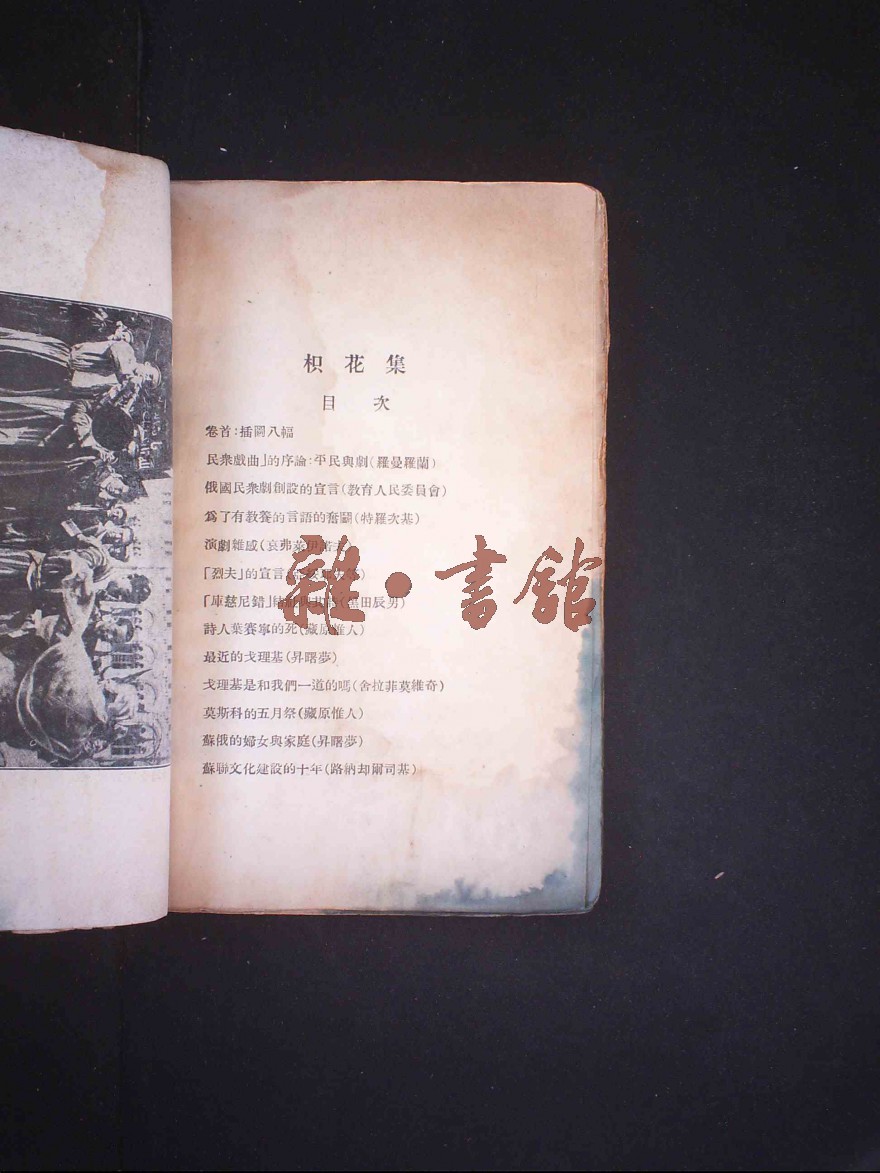 枳花集
目次
卷首:插圖八幅
民衆戲曲」的序論:平民與劇(羅曼羅蘭)
俄國民衆劇創設的宣言(教育人民委員會)
爲了有教養的言語的奮鬭(特羅次基)
演劇雜感(哀弗萊伊諾夫
「烈夫」的宣言
「庫慈尼錯」結 與其詩(黑田辰男)
詩人葉賽寧的死(藏原惟人)
最近的戈理基(昇曙夢)
戈理基是和我們一道的嗎(舍拉菲莫維奇)
莫斯科的五月祭(藏原惟人)
蘇俄的婦女與家庭(昇曙夢)
蘇聯文化建設的十年(路納却爾司基)
雜·書館